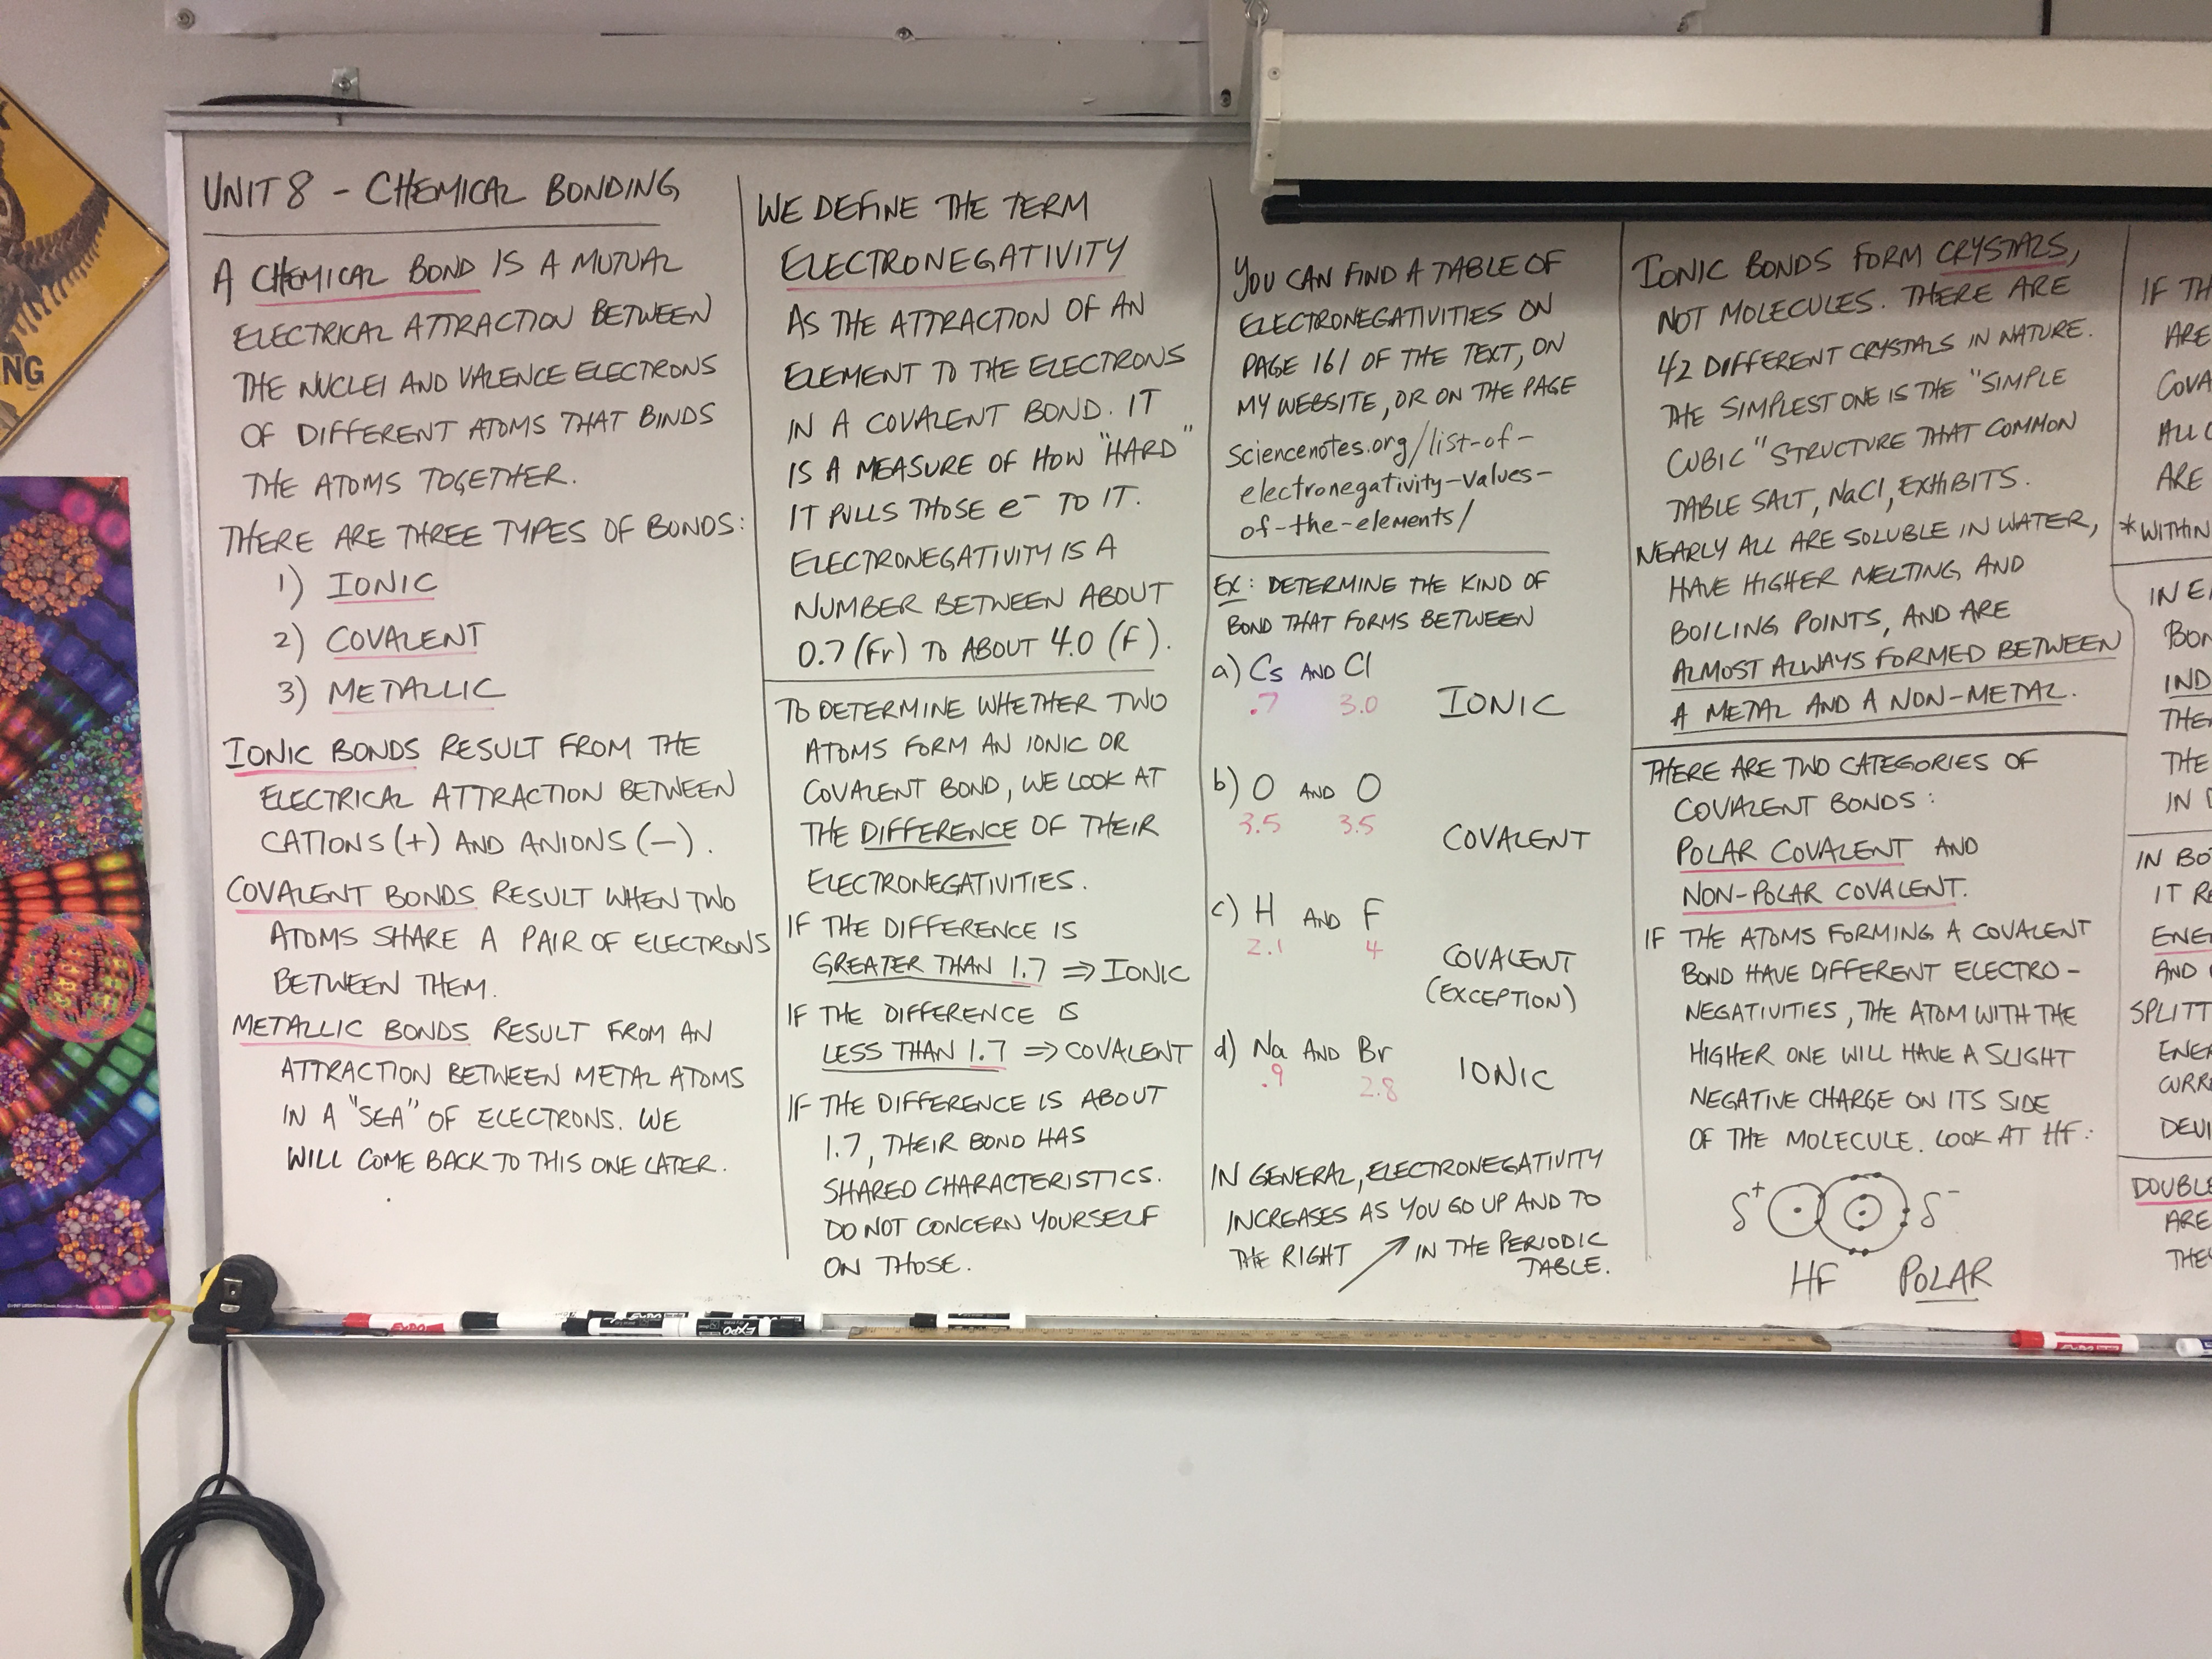 UNIT 8 - CHEMICAL BONDING
A CHEMICAL BOND IS A MUTUAL
ELECTRICAL ATTRACTION BETWEEN
THE NUCLEI AND VALENCE ELECTRONS
OF DIFFERENT ATOMS THAT BINDS
THE ATOMS TOGETHER.
THERE ARE THREE TYPES OF BONDS:
1) IONIC
2) COVALENT
3) METALLIC
IONIC BONDS RESULT FROM THE
ELECTRICAL ATTRACTION BETWEEN
CATIONS (+) AND ANIONS (-).
COVALENT BONDS RESULT WHEN TWO
ATOMS SHARE A PAIR OF ELECTRONS
BETWEEN THEM.
METALLIC BONDS RESULT FROM AN
ATTRACTION BETWEEN METAL ATOMS
IN A "SEA" OF ELECTRONS. WE
WILL COME BACK TO THIS ONE LATER.
WE DEFINE THE TERM
ELECTRONEGATIVITY
AS THE ATTRACTION OF AN
ELEMENT TO THE ELECTRONS
IN A COVALENT BOND. IT
IS A MEASURE OF HOW "HARD"
IT PULLS THOSE e⁻ TO IT.
ELECTRONEGATIVITY IS A
NUMBER BETWEEN ABOUT
0.7 (Fr) TO ABOUT 4.0 (F).
TO DETERMINE WHETHER TWO
ATOMS FORM AN IONIC OR
COVALENT BOND, WE LOOK AT
THE DIFFERENCE OF THEIR
ELECTRONEGATIVITIES.
IF THE DIFFERENCE IS
GREATER THAN 1.7 ⇒ IONIC
IF THE DIFFERENCE IS
LESS THAN 1.7 ⇒ COVALENT
IF THE DIFFERENCE IS ABOUT
1.7, THEIR BOND HAS
SHARED CHARACTERISTICS.
DO NOT CONCERN YOURSELF
ON THOSE.
YOU CAN FIND A TABLE OF
ELECTRONEGATIVITIES ON
PAGE 161 OF THE TEXT, ON
MY WEBSITE, OR ON THE PAGE
sciencenotes.org/list-of-
electronegativity-values-
of-the-elements/
EX: DETERMINE THE KIND OF
BOND THAT FORMS BETWEEN
a) Cs AND Cl
.7 3.0 IONIC
b) O AND O
3.5 3.5
COVALENT
c) H AND F
2.1 4
COVALENT
(EXCEPTION)
d) Na AND Br
.9 2.8 IONIC
IN GENERAL, ELECTRONEGATIVITY
INCREASES AS YOU GO UP AND TO
THE RIGHT ↗ IN THE PERIODIC
TABLE.
IONIC BONDS FORM CRYSTALS,
NOT MOLECULES. THERE ARE
42 DIFFERENT CRYSTALS IN NATURE.
THE SIMPLEST ONE IS THE "SIMPLE
CUBIC" STRUCTURE THAT COMMON
TABLE SALT, NaCl, EXHIBITS.
NEARLY ALL ARE SOLUBLE IN WATER,
HAVE HIGHER MELTING AND
BOILING POINTS, AND ARE
ALMOST ALWAYS FORMED BETWEEN
A METAL AND A NON-METAL.
THERE ARE TWO CATEGORIES OF
COVALENT BONDS:
POLAR COVALENT AND
NON-POLAR COVALENT.
IF THE ATOMS FORMING A COVALENT
BOND HAVE DIFFERENT ELECTRO-
NEGATIVITIES, THE ATOM WITH THE
HIGHER ONE WILL HAVE A SLIGHT
NEGATIVE CHARGE ON ITS SIDE
OF THE MOLECULE. LOOK AT HF:
δ⁺ δ⁻
HF POLAR
IF TH
ARE
COVA
ALL
ARE
*WITHIN
IN E
BON
IND
THE
THE
IN
IN BO
IT RE
ENE
AND
SPLITT
ENER
CURR
DEVI
DOUBLE
ARE
THEY
NG
EXPO
EXPO